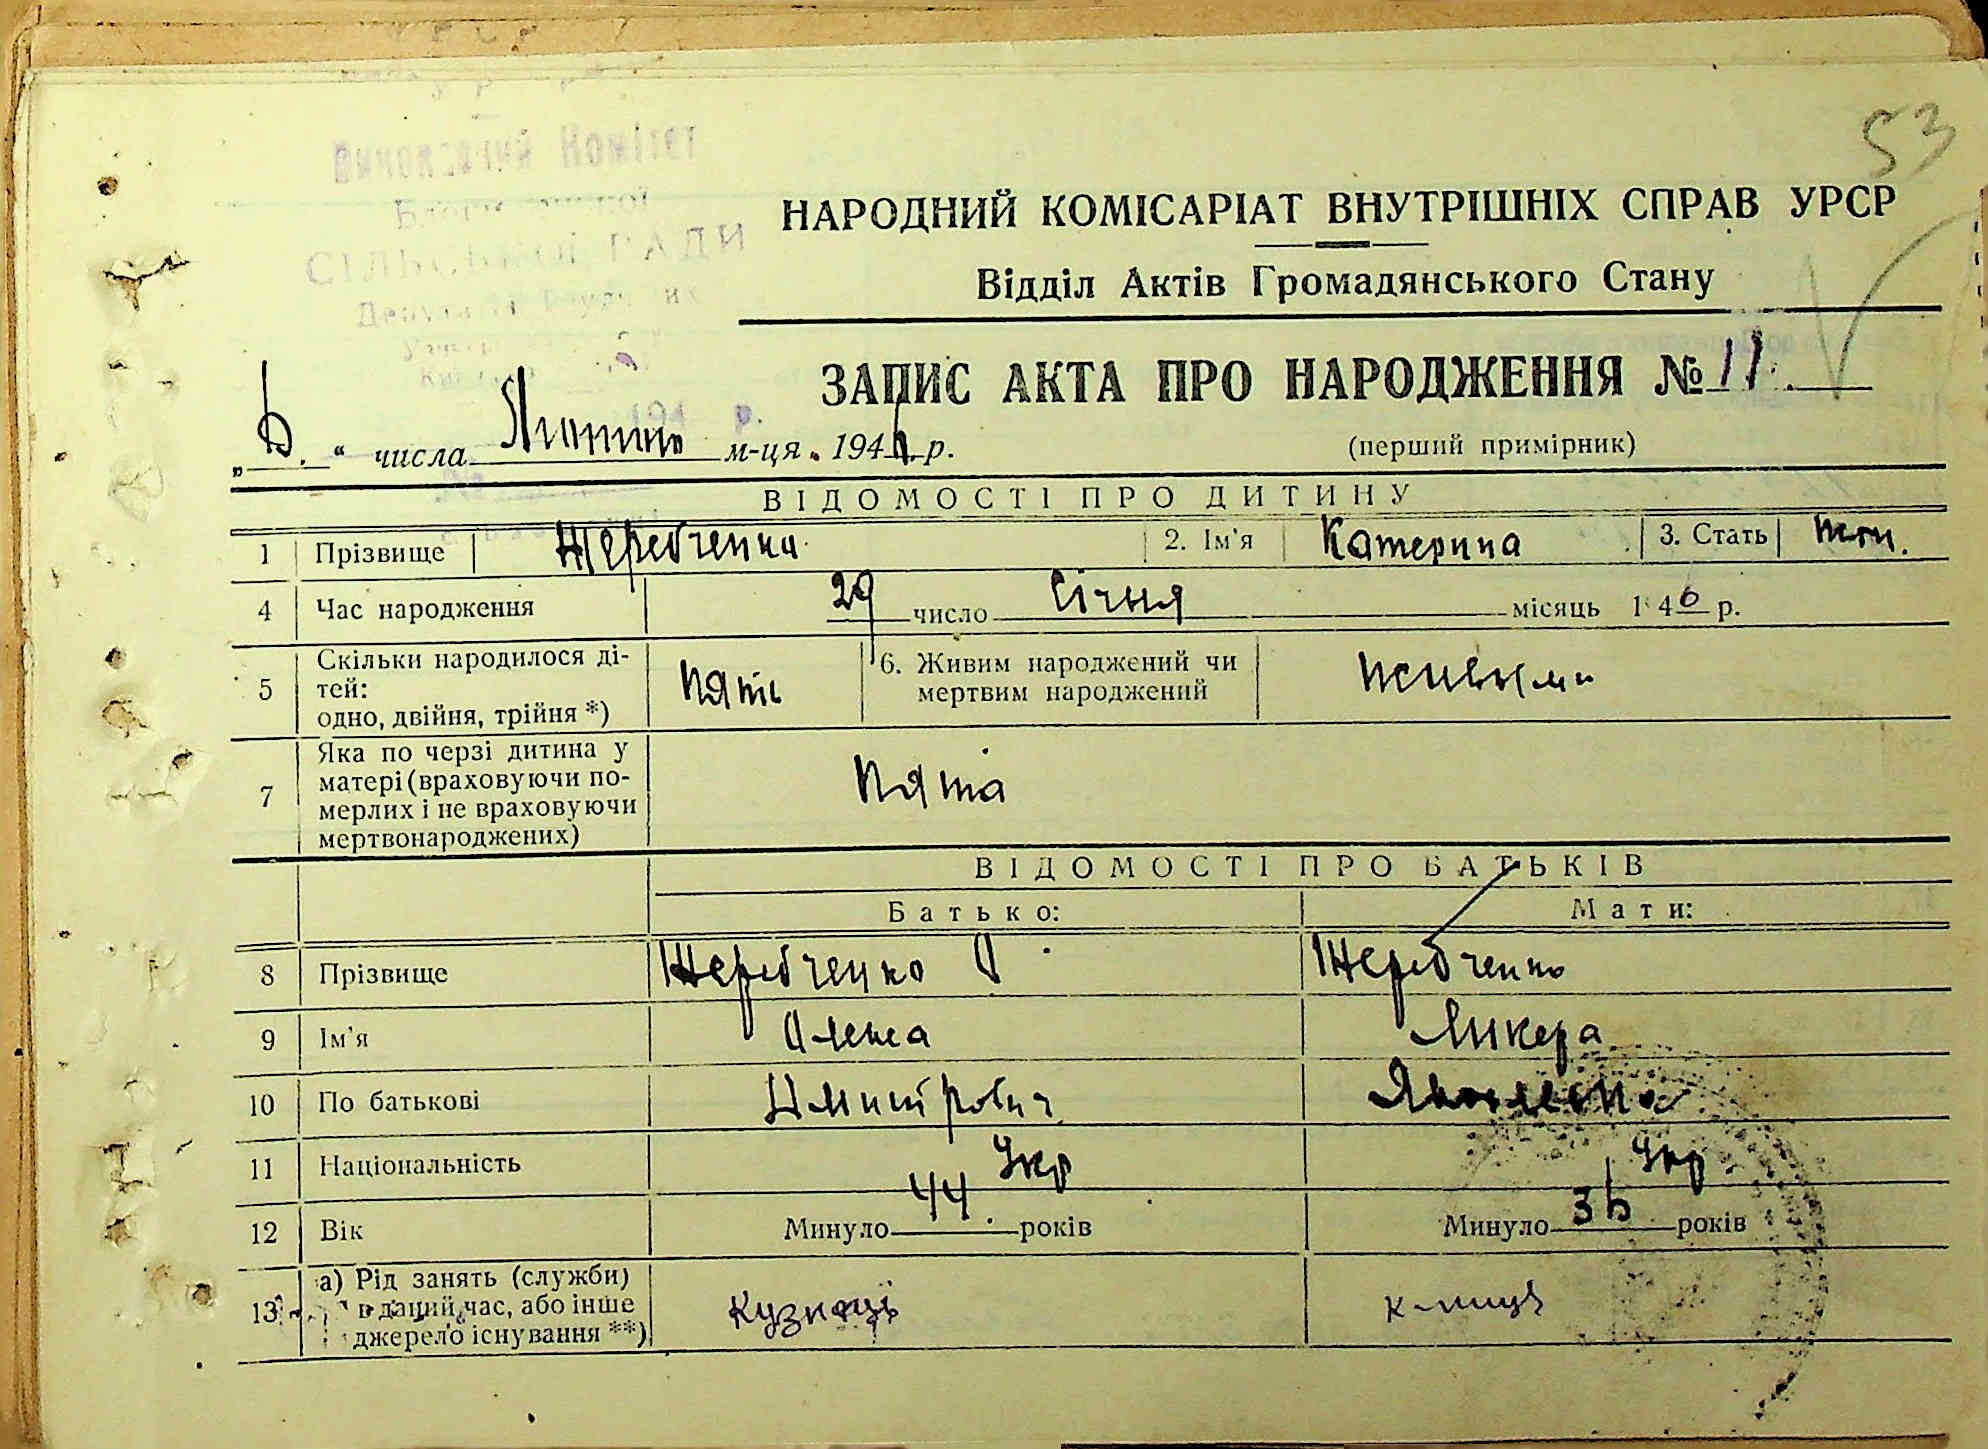 53
Виконавчий Комітет
СІЛЬСЬКОЇ РАДИ
194 р.
НАРОДНИЙ КОМІСАРІАТ ВНУТРІШНІХ СПРАВ УРСР
Відділ Актів Громадянського Стану
ЗАПИС АКТА ПРО НАРОДЖЕННЯ № 11.
(перший примірник)
„6.“ числа Лютого м-ця 1946 р.
ВІДОМОСТІ ПРО ДИТИНУ
1 Прізвище Жеребченко 2. Ім'я Катерина 3. Стать жін.
4 Час народження 29 число Січня місяць 1946 р.
5 Скільки народилося ді-
тей:
одно, двійня, трійня *) пять 6. Живим народжений чи
мертвим народжений живыми
7 Яка по черзі дитина у
матері (враховуючи по-
мерлих і не враховуючи
мертвонароджених) пята
ВІДОМОСТІ ПРО БАТЬКІВ
Батько: Мати:
8 Прізвище Жеребченко Жеребченко
9 Ім'я Олекса Ликера
10 По батькові Дмитрович
11 Національність Укр Укр
12 Вік Минуло 44 років Минуло 36 років
13 а) Рід занять (служби)
в даний час, або інше
джерело існування **) к-ниця